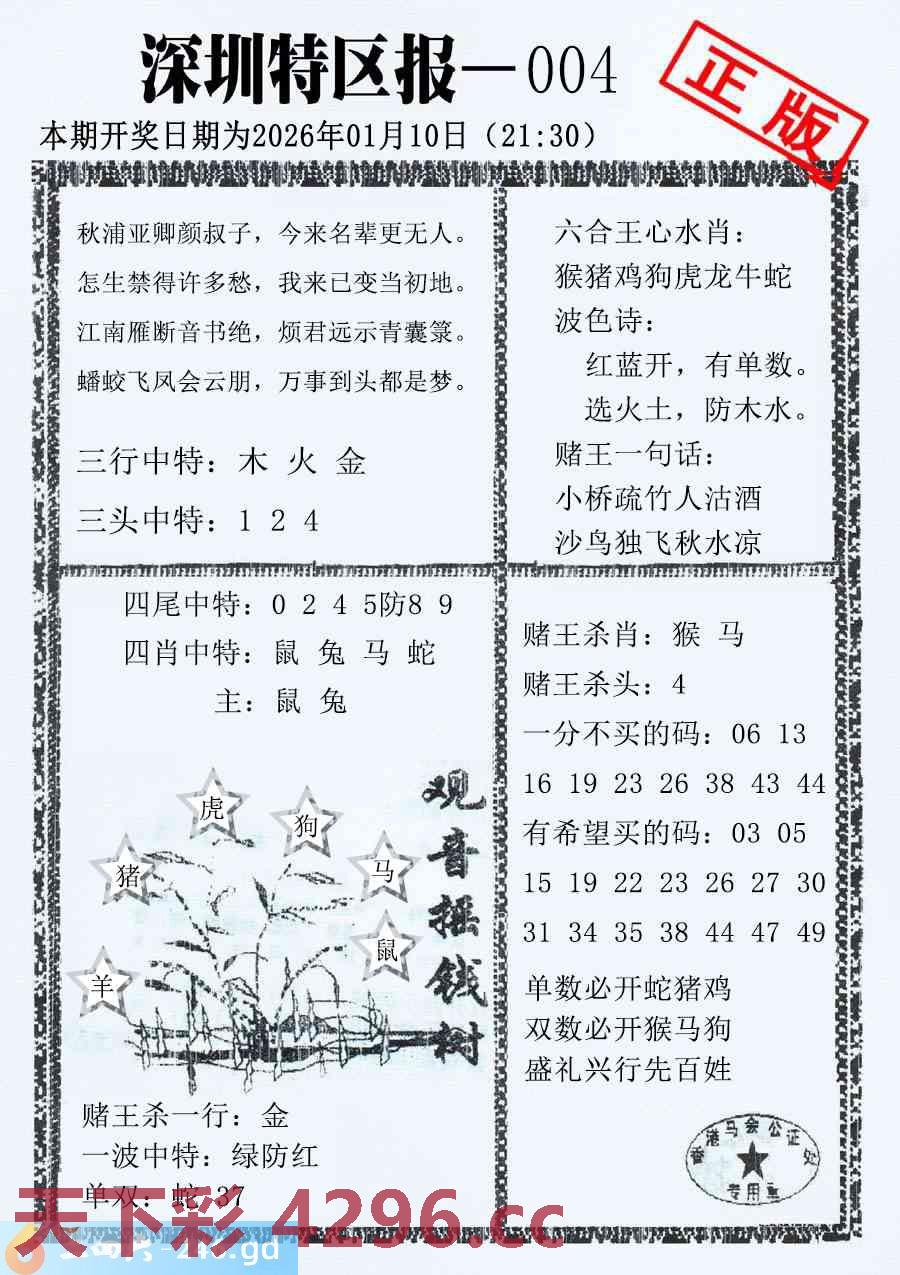 深圳特区报—004
正版
本期开奖日期为2026年01月10日（21:30）
秋浦亚卿颜叔子，今来名辈更无人。
怎生禁得许多愁，我来已变当初地。
江南雁断音书绝，烦君远示青囊箓。
蟠蛟飞凤会云朋，万事到头都是梦。
三行中特：木 火 金
三头中特：1 2 4
六合王心水肖：
猴猪鸡狗虎龙牛蛇
波色诗：
红蓝开，有单数。
选火土，防木水。
赌王一句话：
小桥疏竹人沽酒
沙鸟独飞秋水凉
四尾中特：0 2 4 5防8 9
四肖中特：鼠 兔 马 蛇
主：鼠 兔
观音摇钱树
虎
狗
猪
马
鼠
羊
赌王杀一行：金
一波中特：绿防红
单双：蛇 37
赌王杀肖：猴 马
赌王杀头：4
一分不买的码：06 13
16 19 23 26 38 43 44
有希望买的码：03 05
15 19 22 23 26 27 30
31 34 35 38 44 47 49
单数必开蛇猪鸡
双数必开猴马狗
盛礼兴行先百姓
香港马会公证处
专用章
天下彩 4296.cc